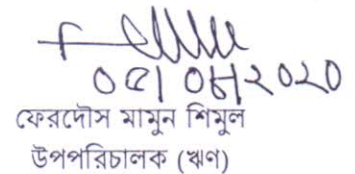 ০৫/০৮/২০২০
ফেরদৌস মামুন শিমুল
উপপরিচালক (ঋণ)